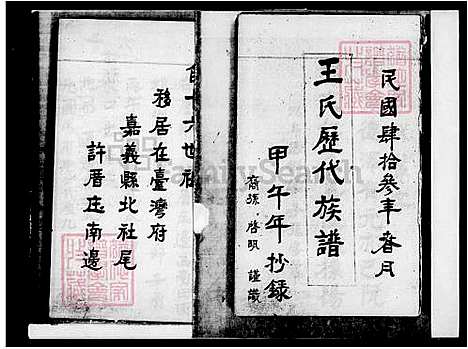 民國肆拾叁年春月
王氏歷代族譜
甲午年抄錄
裔孫·啓明 謹識
十六世祖
移居在臺灣府
嘉義縣北社尾
許厝庄南邊